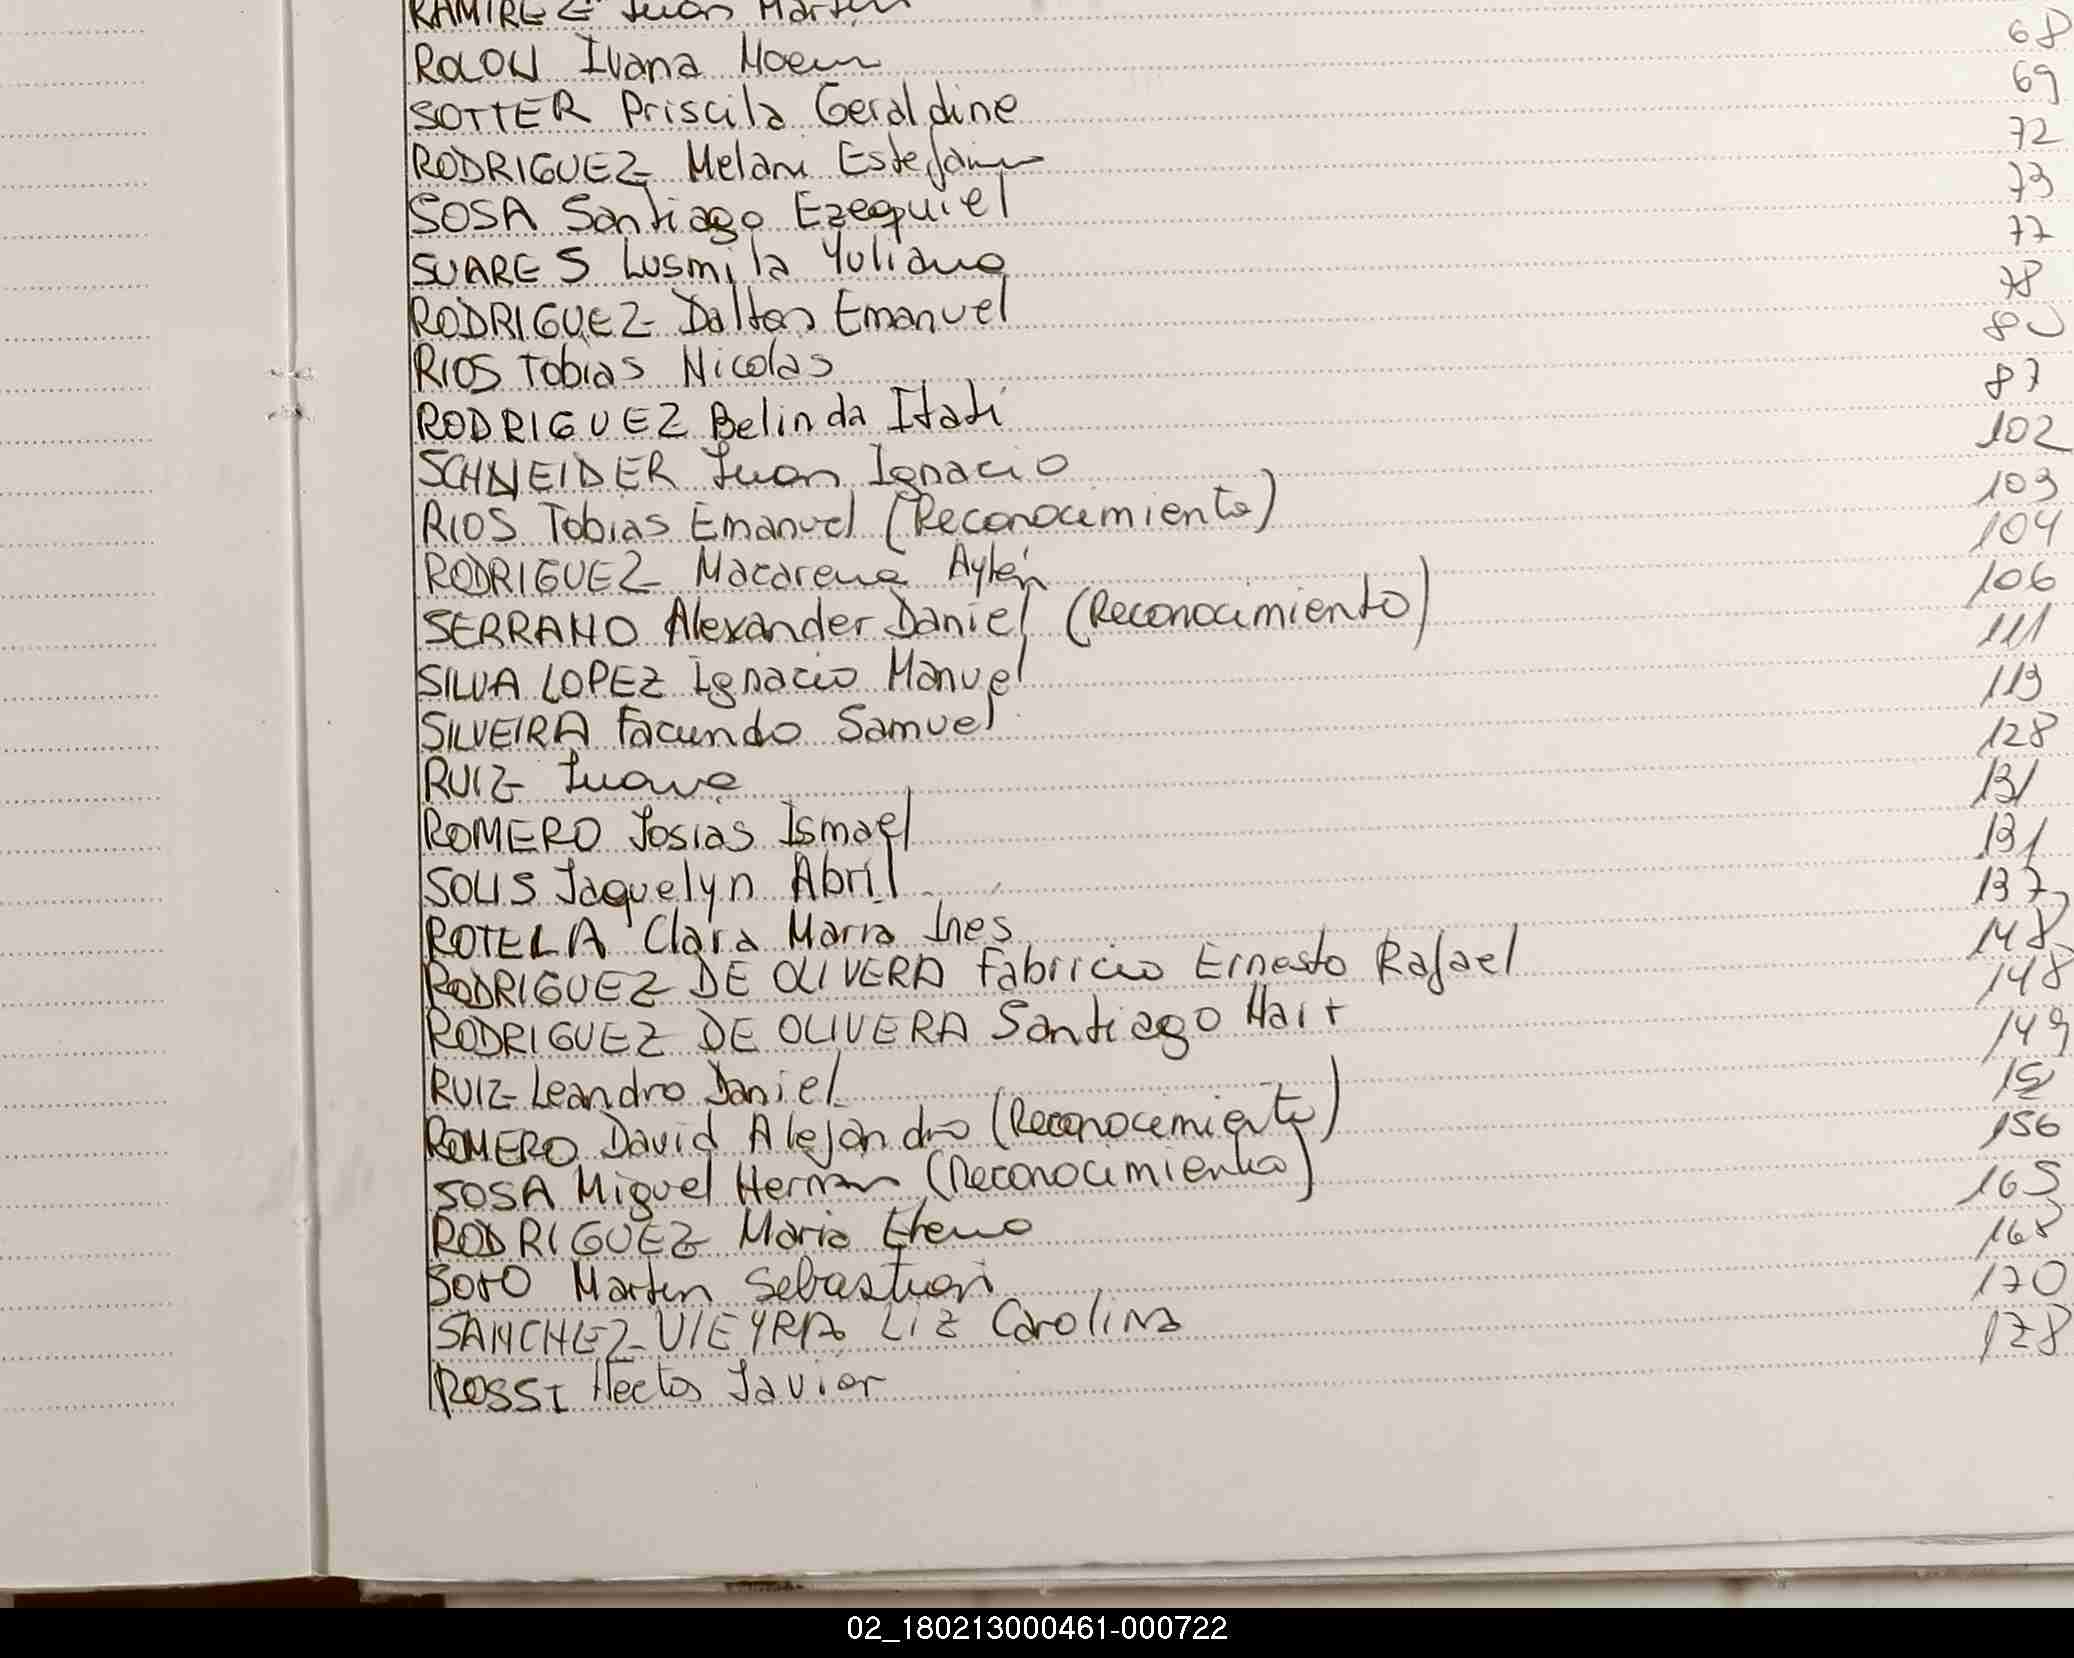 RAMIREZ Juan Martin
ROLON Ivana Noemi 68
SOTTER Priscila Geraldine 69
RODRIGUEZ Melani Estefania 72
SOSA Santiago Ezequiel 73
SUARES Lusmila Yuliana 77
RODRIGUEZ Dalton Emanuel 78
RIOS Tobias Nicolas 80
RODRIGUEZ Belinda Itati 87
SCHNEIDER Juan Ignacio 102
RIOS Tobias Emanuel (Reconocimiento) 103
RODRIGUEZ Macarena Aylén 104
SERRANO Alexander Daniel (Reconocimiento) 106
SILVA LOPEZ Ignacio Manuel 111
SILVEIRA Facundo Samuel 113
RUIZ Juana 128
ROMERO Josias Ismael 131
SOLIS Jaquelyn Abril 131
ROTELA Clara Maria Ines 137
RODRIGUEZ DE OLIVERA Fabricio Ernesto Rafael 148
RODRIGUEZ DE OLIVERA Santiago 148
RUIZ Leandro Daniel 149
ROMERO David Alejandro (Reconocimiento)
SOSA Miguel Hernan (Reconocimiento) 156
RODRIGUEZ Maria Elena 165
SOTO Martin Sebastian 168
SANCHEZ VIEYRA Liz Carolina 170
ROSSI Hector Javier 178
02_180213000461-000722